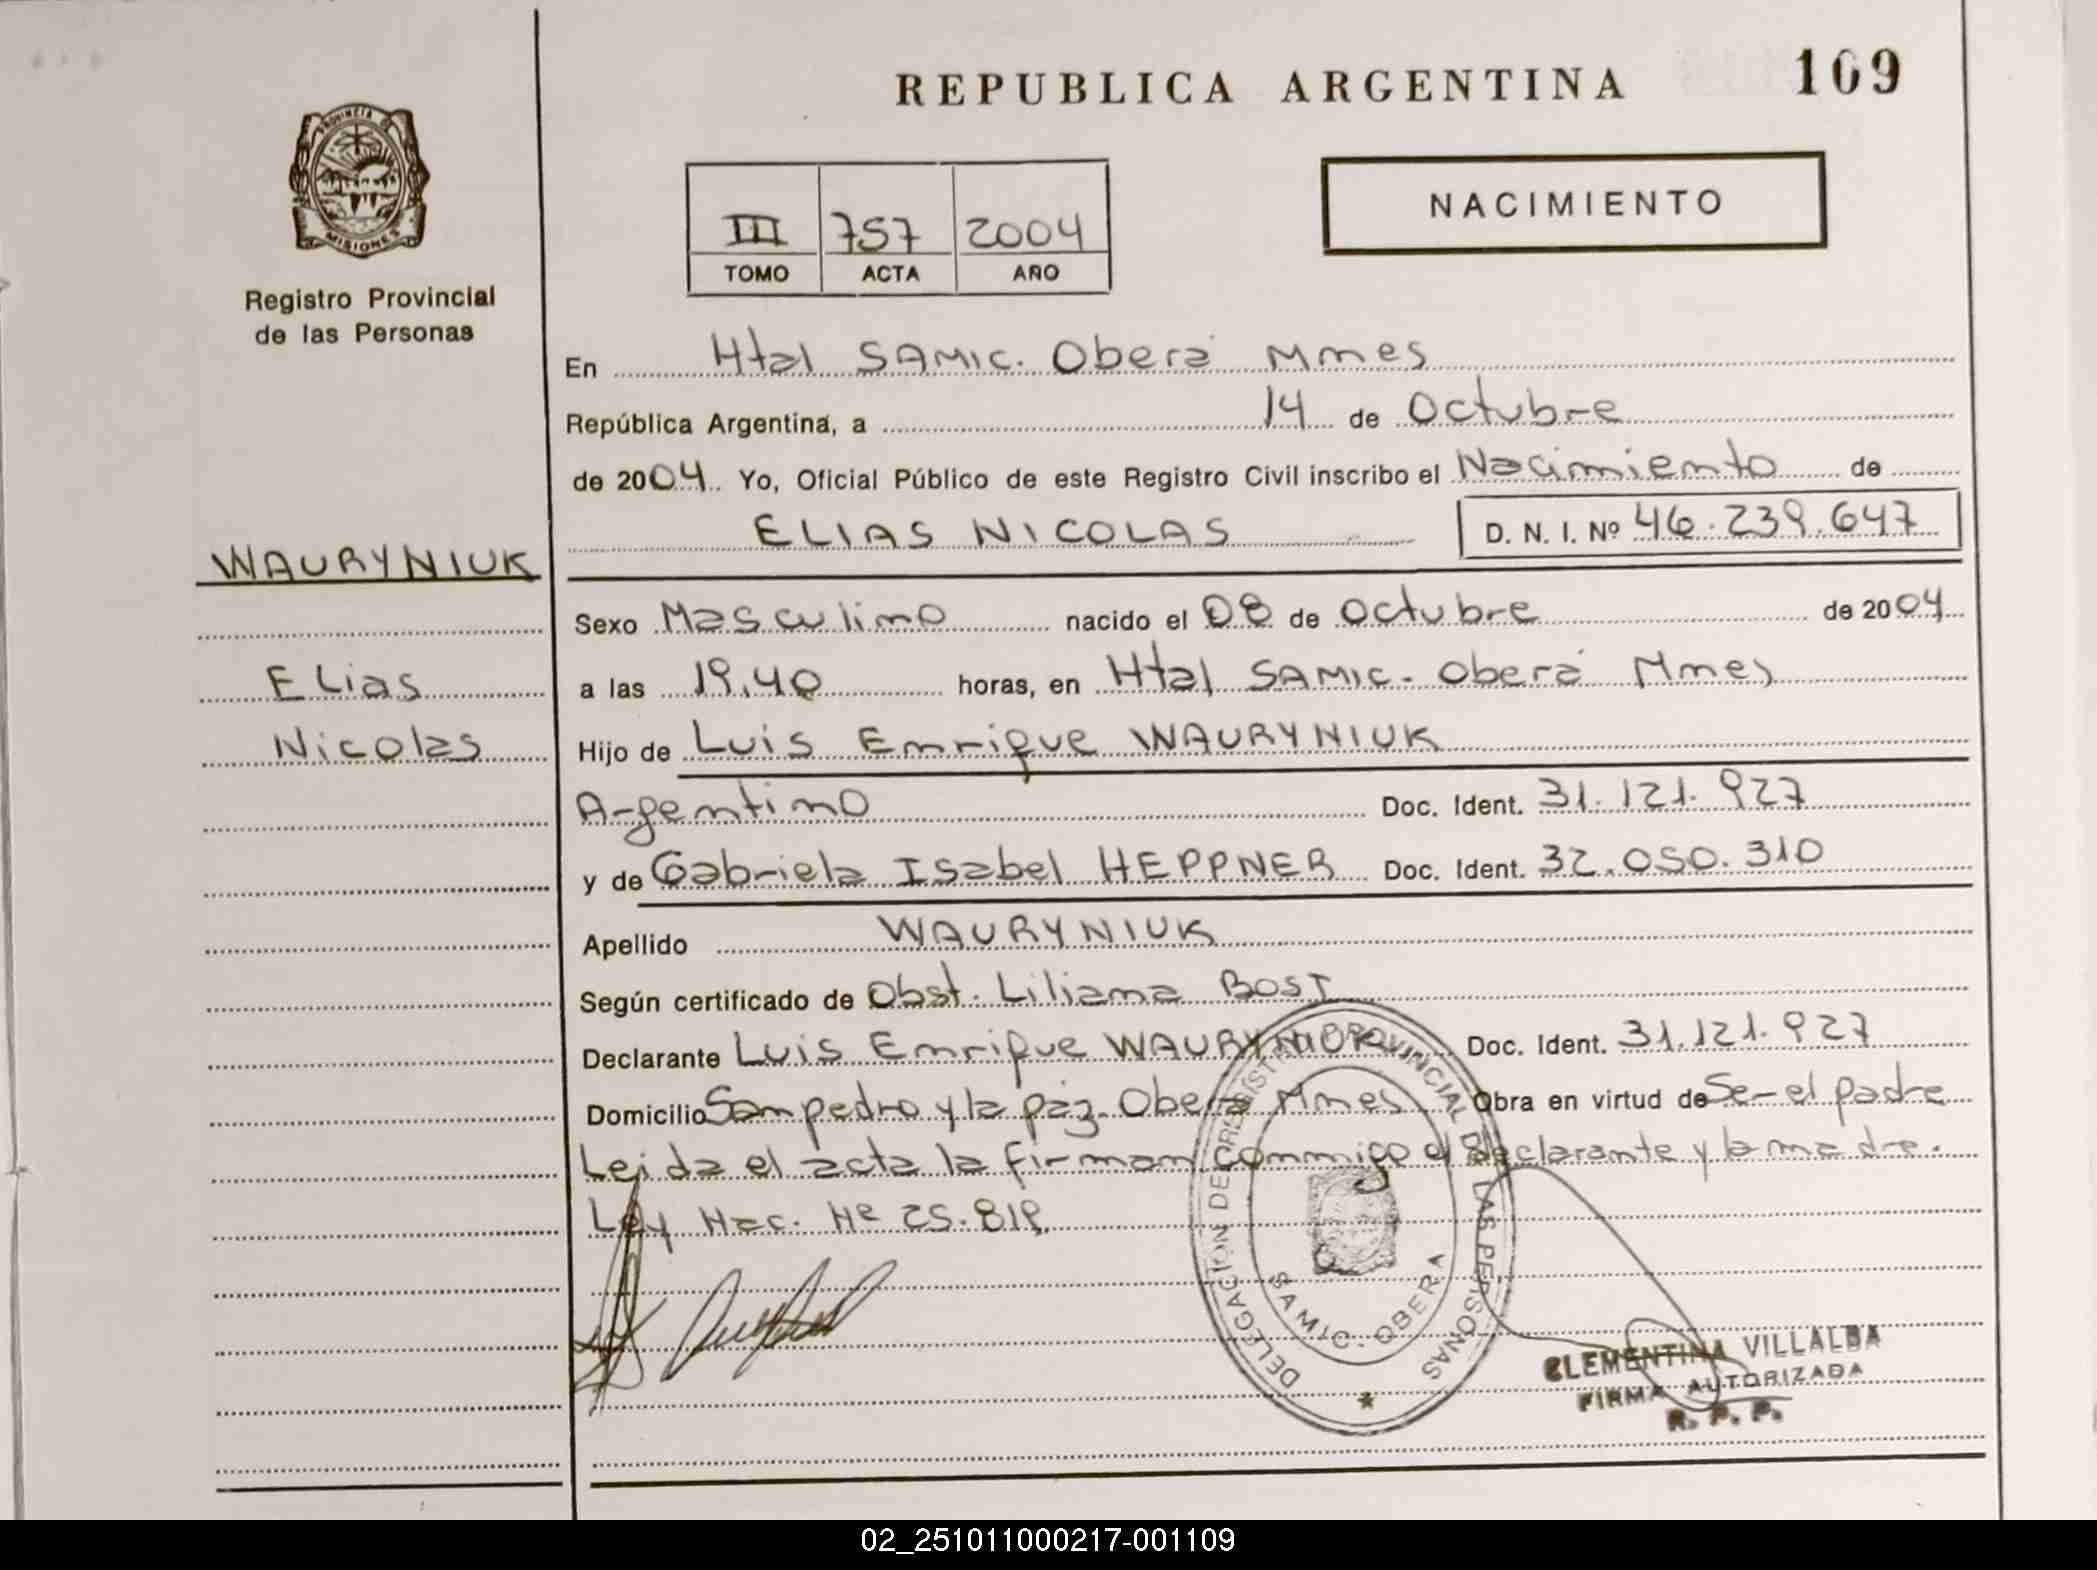 REPUBLICA ARGENTINA
109
PROVINCIA DE
MISIONES
Registro Provincial
de las Personas
III 757 2004
TOMO ACTA AÑO
NACIMIENTO
En Htal SAMIC. Oberá Mnes
República Argentina, a 14 de Octubre
de 2004. Yo, Oficial Público de este Registro Civil inscribo el Nacimiento de
ELIAS NICOLAS D. N. I. Nº 46.239.647
WAURYNIUK
Elias
Nicolas
Sexo Masculino nacido el 08 de octubre de 2004
a las 19.40 horas, en Htal SAMIC. Oberá Mnes
Hijo de Luis Enrique WAURYNIUK
Argentino Doc. Ident. 31.121.927
y de Gabriela Isabel HEPPNER Doc. Ident. 32.050.310
Apellido WAURYNIUK
Según certificado de Obst. Liliana BOST
Declarante Luis Enrique WAURYNIUK Doc. Ident. 31.121.927
Domicilio San pedro y la paz. Oberá Mnes Obra en virtud de Ser el padre
Leida el acta la firman conmigo el declarante y la madre.
Ley Nac. Nº 25.819.
DELEGACION DE REGISTRO PROVINCIAL DE LAS PERSONAS
SAMIC. OBERA
CLEMENTINA VILLALBA
FIRMA AUTORIZADA
R. P. P.
02_251011000217-001109